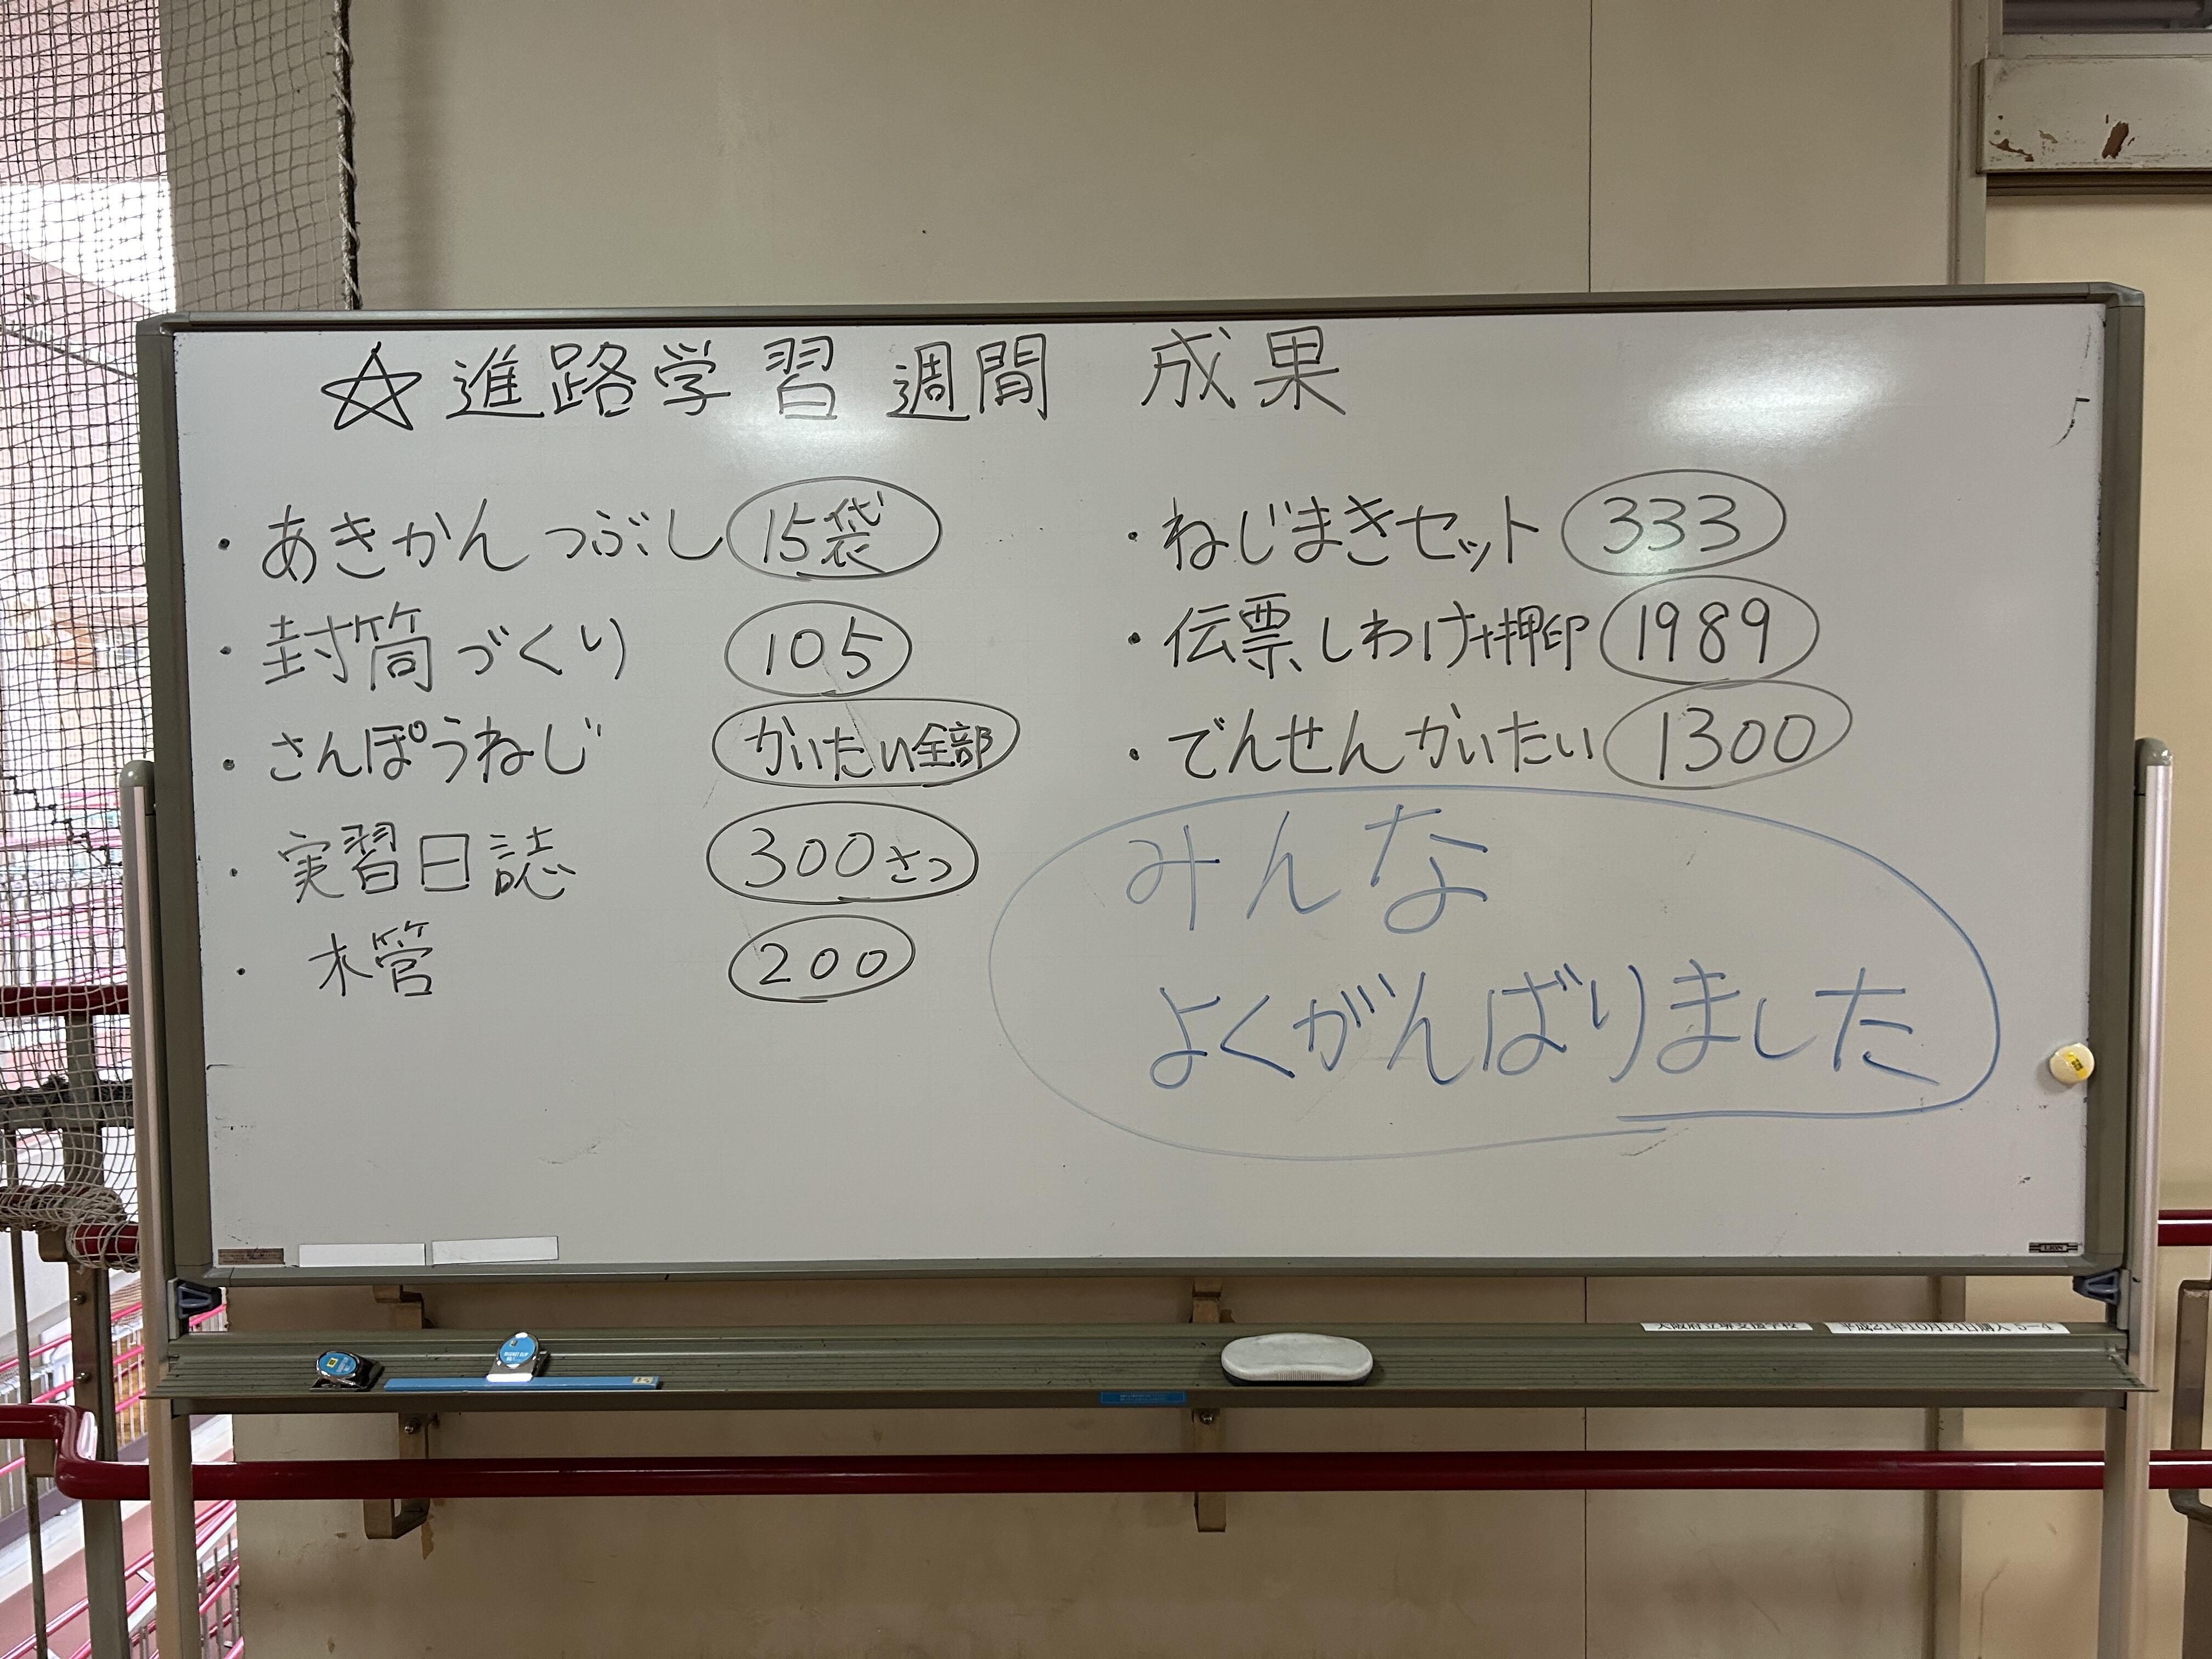 ☆進路学習週間 成果
・あきかんつぶし 15袋
・封筒づくり 105
・さんぽうねじ かいたい全部
・実習日誌 300さつ
・木管 200
・ねじまきセット 333
・伝票しわけ+押印 1989
・でんせんかいたい 1300
みんな
よくがんばりました
LION
大阪府立堺支援学校
平成21年10月14日購入 5-4